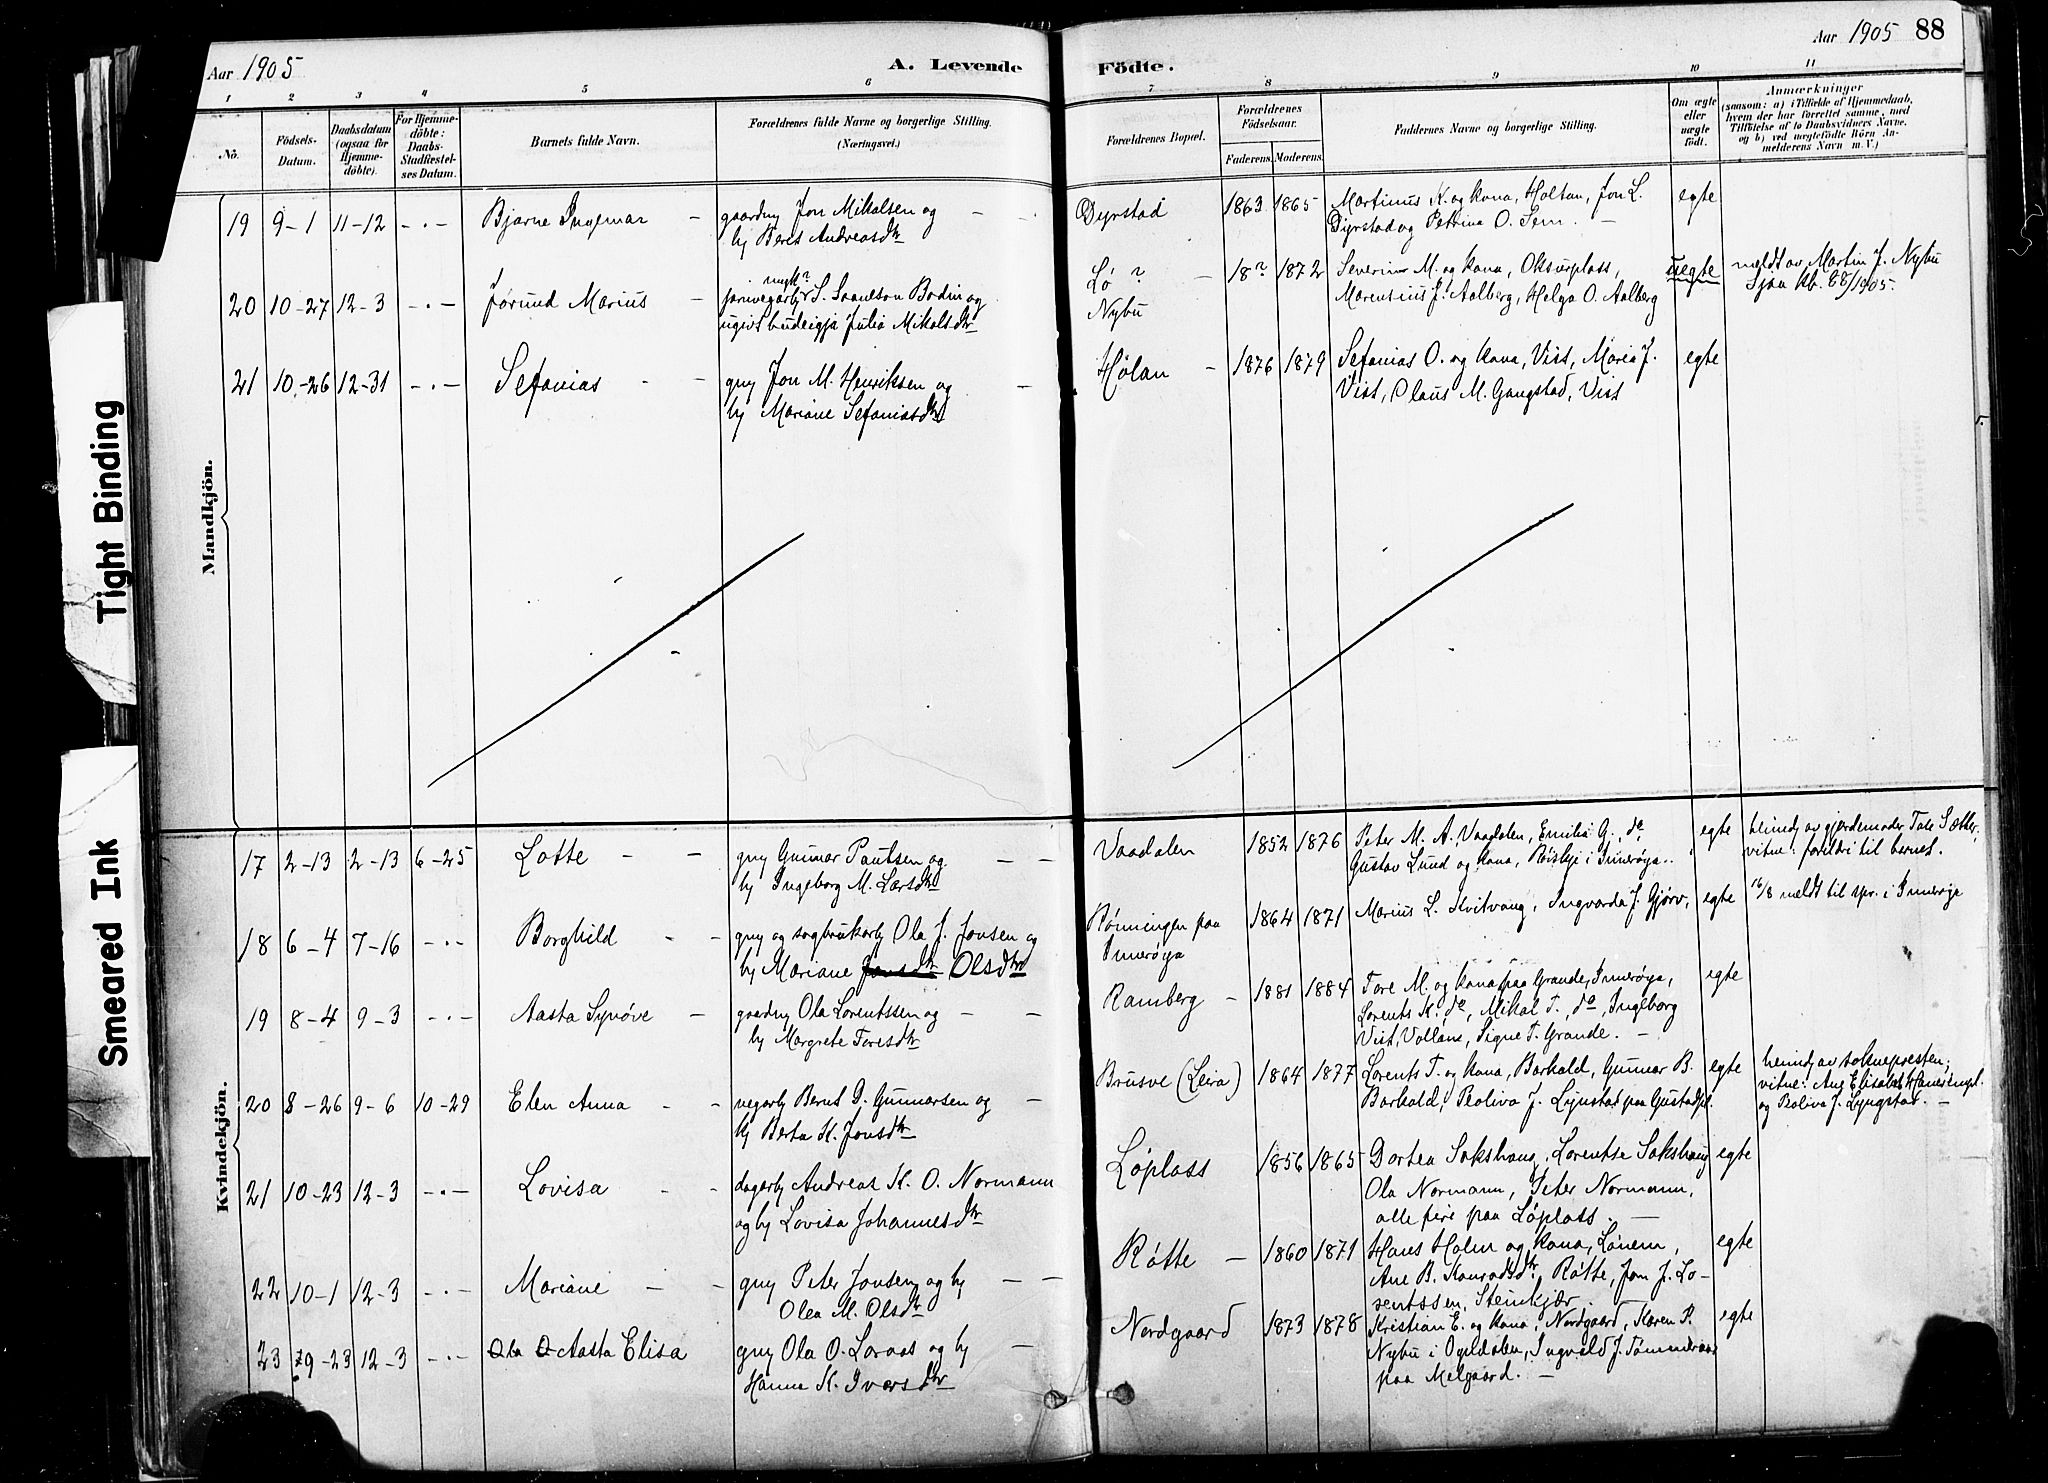 Aar 1905
A. Levende
Födte.
Aar 1905 88
1 2 3 4 5 6 7 8 9 10 11
No.
Födsels-
Datum.
Daabsdatum
(ogsaa for
Hjemme-
döbte).
For Hjemme-
döbte:
Daabs-
Stadfæstel-
ses Datum.
Barnets fulde Navn.
Forældrenes fulde Navne og borgerlige Stilling.
(Næringsvei.)
Forældrenes Bopæl.
Forældrenes
Födselsaar.
Faderens. Moderens.
Faddernes Navne og borgerlige Stilling.
Om ægte
eller
uægte
födt.
Anmærkninger
(saasom: a) i Tilfælde af Hjemmedaab,
hvem der har forrettet samme, med
Tilföielse af to Daabsvidners Navne,
og b) ved uægtefödte Börn An-
melderens Navn m. V.)
Mandkjön.
19 9-1 11-12 -.- Bjarne Ingemar - gaardmy Jon Mikalsen og - -
hj Beret Andreasdtr
Dyrstad 1863 1865 Martinus K. og kona, Holtan, Jon L.
Dyrstad og Petrina O. Sem. -
egte
20 10-27 12-3 -.- Jørund Marius -
jarnvegarb S. Bodin og
ugivt budeigja Julia Mikalsdtr
Lø ? -
Nybu
18? 1872 Severin M. og kona, Oksurplass,
Marensius J. Aalberg, Helga O. Aalberg
uegte
meldt av Martin J. Nybu
Sjaa kb. 88/1905.
21 10-26 12-31 -.- Sefanias - - gmy Jon M. Henriksen og -
hj Mariane Sefaniasdtr
Hølan - 1876 1879 Sefanias O. og kona, Vist, Maria J.
Vist, Olaus M. Gangstad, Vist
egte
Kvindekjön.
17 2-13 2-13 6-25 Lotte - - gmy Gunnar Paulsen og - -
hj Ingeborg M. Larsdtr
Vaadalen 1852 1876 Peter M. A. Vaadalen, Emilie G., do
Gustav Lund og kona, i Inderøya.
egte
heimdj av gjordemoder Tale Sætter,
vitne: foreldri til barnet.
18 6-4 7-16 -.- Borghild - - gmy og sagbrukarb Ola J. Jonsen og
hj Mariane Jonsdtr Olsdtr
Rønningen paa
Inderøya
1864 1871 Marius L. Kvitvang, Ingvarda J. Gjørv, egte
16/8 meldt til spr. i Inderøya
19 8-4 9-3 -.- Aasta Synøve - gaardmy Ola Lorentssen og - -
hj Margrete Toresdtr
Ramberg - 1881 1884 Tore M. og kona paa Grande, Inderøya,
Lorents K. do, Mikal T., do, Ingeborg
Vist, Vollane, Signe T. Grande. -
egte
20 8-26 9-6 10-29 Elen Anna - - vegarb Bernt G. Gunnarsen og -
hj Berta K. Jonsdtr
Brusve (Leira) 1864 1877 Lorents T. og kona, Barhald, Gunnar B.
Barhald, Paoliva J. Lyngstad paa Gustadpl.
egte
heimdj av soknepresten;
vitne: Ane Elisabet
og Paoliva J. Lyngstad. -
21 10-23 12-3 -.- Lovisa - - dagarb Andreas K. O. Normann
og hj Lovisa Johannesdtr
Løplass 1856 1865 Dortea Sakshaug, Lorentse Sakshaug
Ola Normann, Peter Normann,
alle fire paa Løplass. -
egte
22 10-1 12-3 -.- Mariane - - gmy Peter Jonsen og hj - -
Olea M. Olsdtr
Røtte - 1860 1871 Hans Holm og kona, Lønem,
Ane B. Konradsdtr, Røtte, Jon J. Lo-
rentssen, Steinkjær.
egte
23 9-23 12-3 -.- Ola O Aasta Elisa gmy Ola O. Loraas og hj -
Hanna K. Iversdtr
Nordgaard 1873 1878 Kristian E. og kona, Nordgaard, Karen P.
Nybu i Ogndalen, Ingvald J. Tømmeraas
paa Melgaard. -
egte
Tight Binding
Smeared Ink